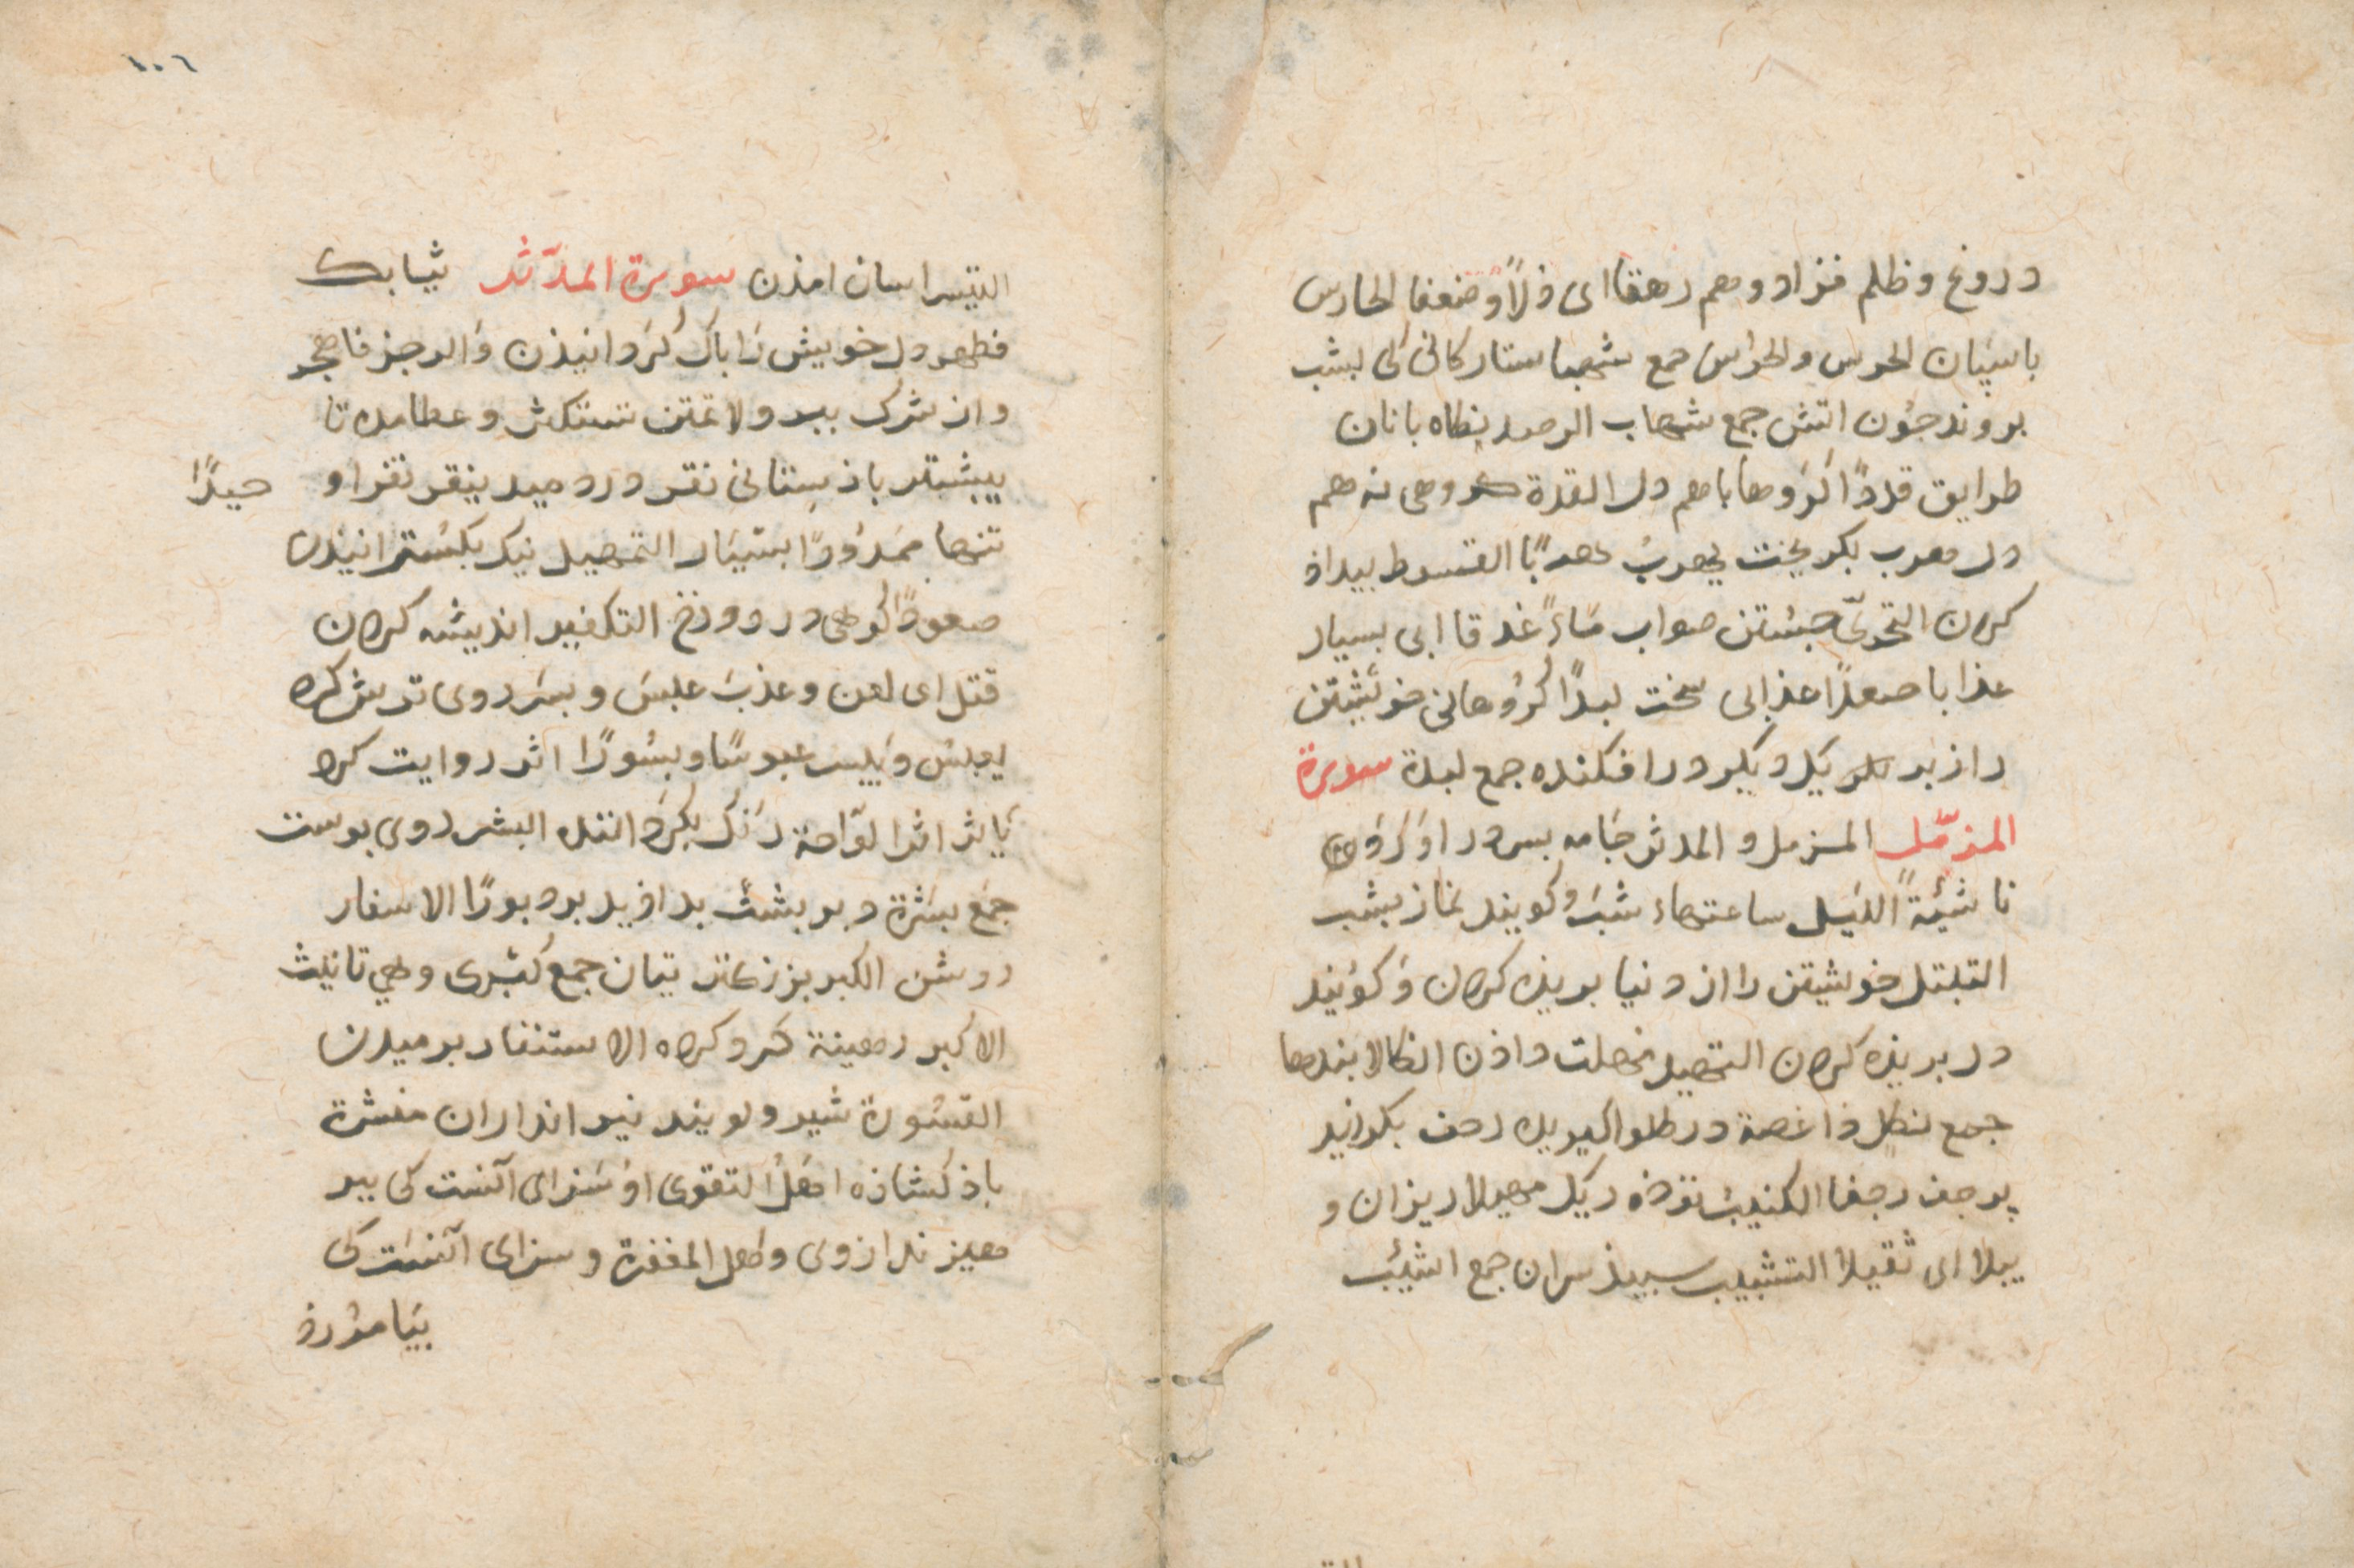 دروغ و ظلم فزادوهم رهقا ای ذلاً و ضعفا الحارس
باسپان الحرس و الحراس جمع شهبا ستارکانی کی بشب
بروند جُون اتش جمع شهاب الرصد نكاه بانان
طرایق قددًا کرَوها با هم دل القدة کروهی نه هم
دل هرب بکریخت یهربُ هربًا القسوط بیداذ
کردن التحرّی جستن صواب مَاءً غدقا ابی بسیار
عذابا صعدًا عذابی سخت لبدًا کرُوهانی خویشتن
را از بر یکدیکر درافکنده جمع لبدة سورة
المزمّل المزمل و المدثر جَامه بسر در اوَرَدَه
ناشئةً اللیل ساعتهاء شبَ وکویند نماز بشب
التبتل خویشتن را از دنیا بریذه کردن وَ کوَیند
دل بریذه کردن التمهیل مهلت داذن انکالا بندها
جمع نکل ذا غصة در کلو اکیریده رجف بکردانید
یرجف رجفا الکثیبُ توده ریکَ مهیلا ریزان و
بیلا ای ثقیلا التشییب سپیذ سران جمع اشیَب
١٠٦
التیسر اسان امذن سورة المدّثر ثیابك
فطهر دل خویش رَا باک کرَدانیذن وَ الرجز فاهجر
و از شرک ببر و لا تمنن تستکثر و عطا مده تا
بیشتر باز ستانی نقر در دمید ینقر نقرا و حیدًا
تنها ممدُودًا بسیَار التمهید نیک بکسُترانیذن
صعودًا کوهی در دوزخ التفکیر اندیشه کردن
قتل ای لعن و عذبَ عبسَ و بسَر روی ترش کرد
یعبسُ و یبسر عبوسًا و بسُورًا اثر روایت کرد
یَاثر اثرا لوّاحة رَنک بکرَداننده البشر روی پوست
جمَع بشرَة دبر بشت بداذ یدبر دبورًا الاسفار
روشن الکبر بزرکتریَان جمع کبْری و هي تانیث
الاکبر رهینة کرو کرده الاستنفار برمیدن
القسْورة شیر و کویند تیر انداران منشرة
باز کشاذه اهَلُ التقوی اوَ سَزای آنست کی ببر
هیزند از وی و اهل المغفرة و سزای آنست کی
بیَامرُرذ